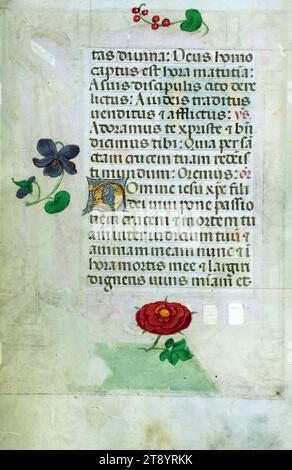 tas diuina: Deus homo
captus est hora matutia:
A suis discipulis cito dere
lictus: A iudeis traditus
uenditus & afflictus: ys.
Adoramus te xpriste & bn̄
dicimus tibi: Quia per sā
tam crucem tuam redeis
ti mundum: Oremus: or
Domine iesu xpe fili
dei uiui pone passio
nem crucem & mortem tu
am inter iudicium tuū &
animam meam nunc & ī
hora mortis mee & largiri
digneris uiuis miam et
alamy
Image ID: 2T8YRKK
www.alamy.com